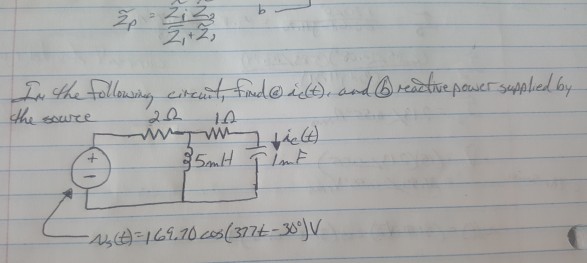 Z̃p = Z̃1 Z̃2 / Z̃1 + Z̃2
b
In the following circuit, find ⓐ ic(t), and ⓑ reactive power supplied by
the source
2Ω 1Ω
↓ic(t)
+
5mH 1mF
−
Vs(t) = 169.70 cos(377t - 30°)V